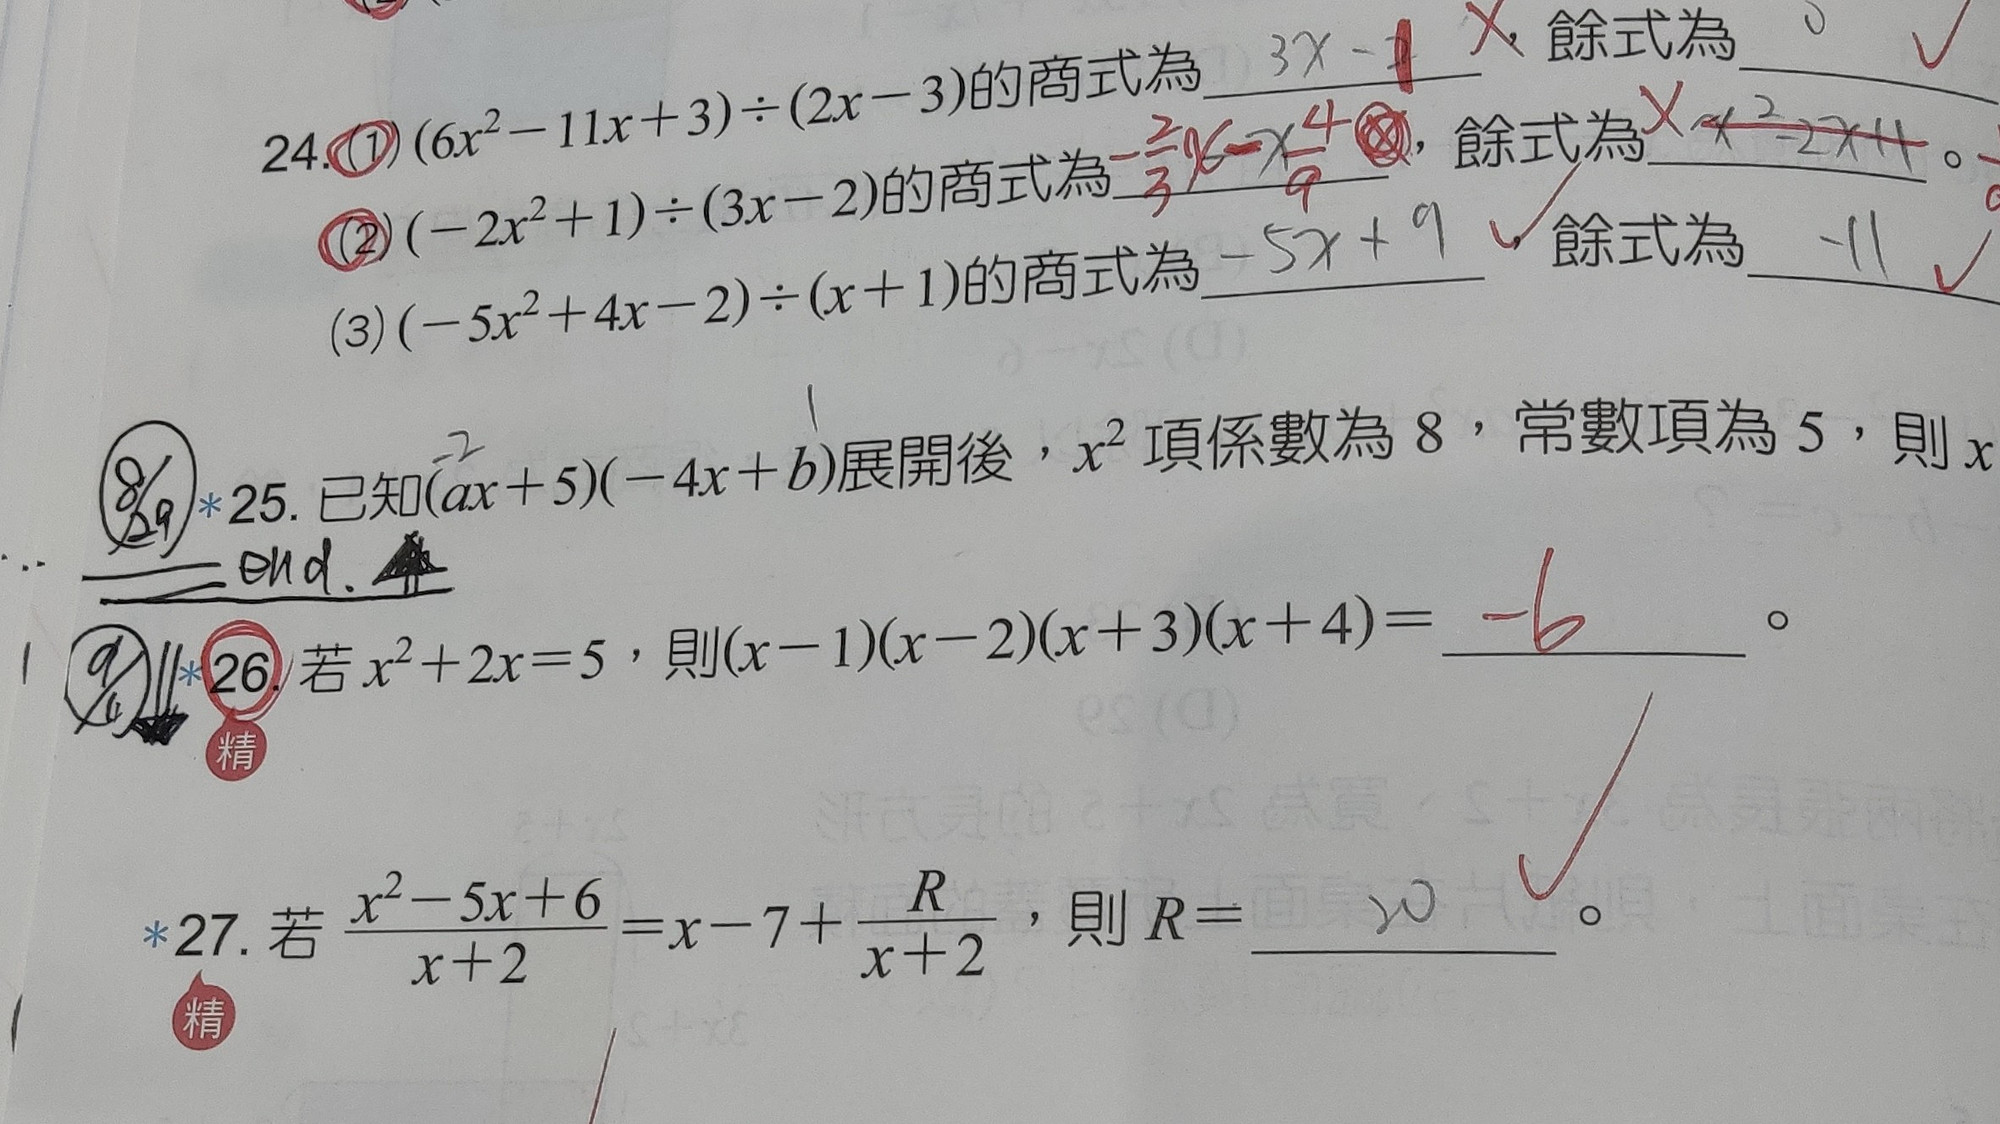 24.(1) (6x²－11x＋3)÷(2x－3)的商式為 3x－1 ✗，餘式為 0 ✓
(2) (－2x²＋1)÷(3x－2)的商式為 －2/3 x－4/9，餘式為 ✗ －x²－2x＋1。
(3) (－5x²＋4x－2)÷(x＋1)的商式為 －5x＋9 ✓，餘式為 －11 ✓
－2 1
8/29 *25. 已知(ax＋5)(－4x＋b)展開後，x² 項係數為 8，常數項為 5，則 x
end.
*26. 若 x²＋2x＝5，則(x－1)(x－2)(x＋3)(x＋4)＝ －6 。
精
*27. 若 (x²－5x＋6)/(x＋2)＝x－7＋R/(x＋2)，則 R＝ 20 。
精